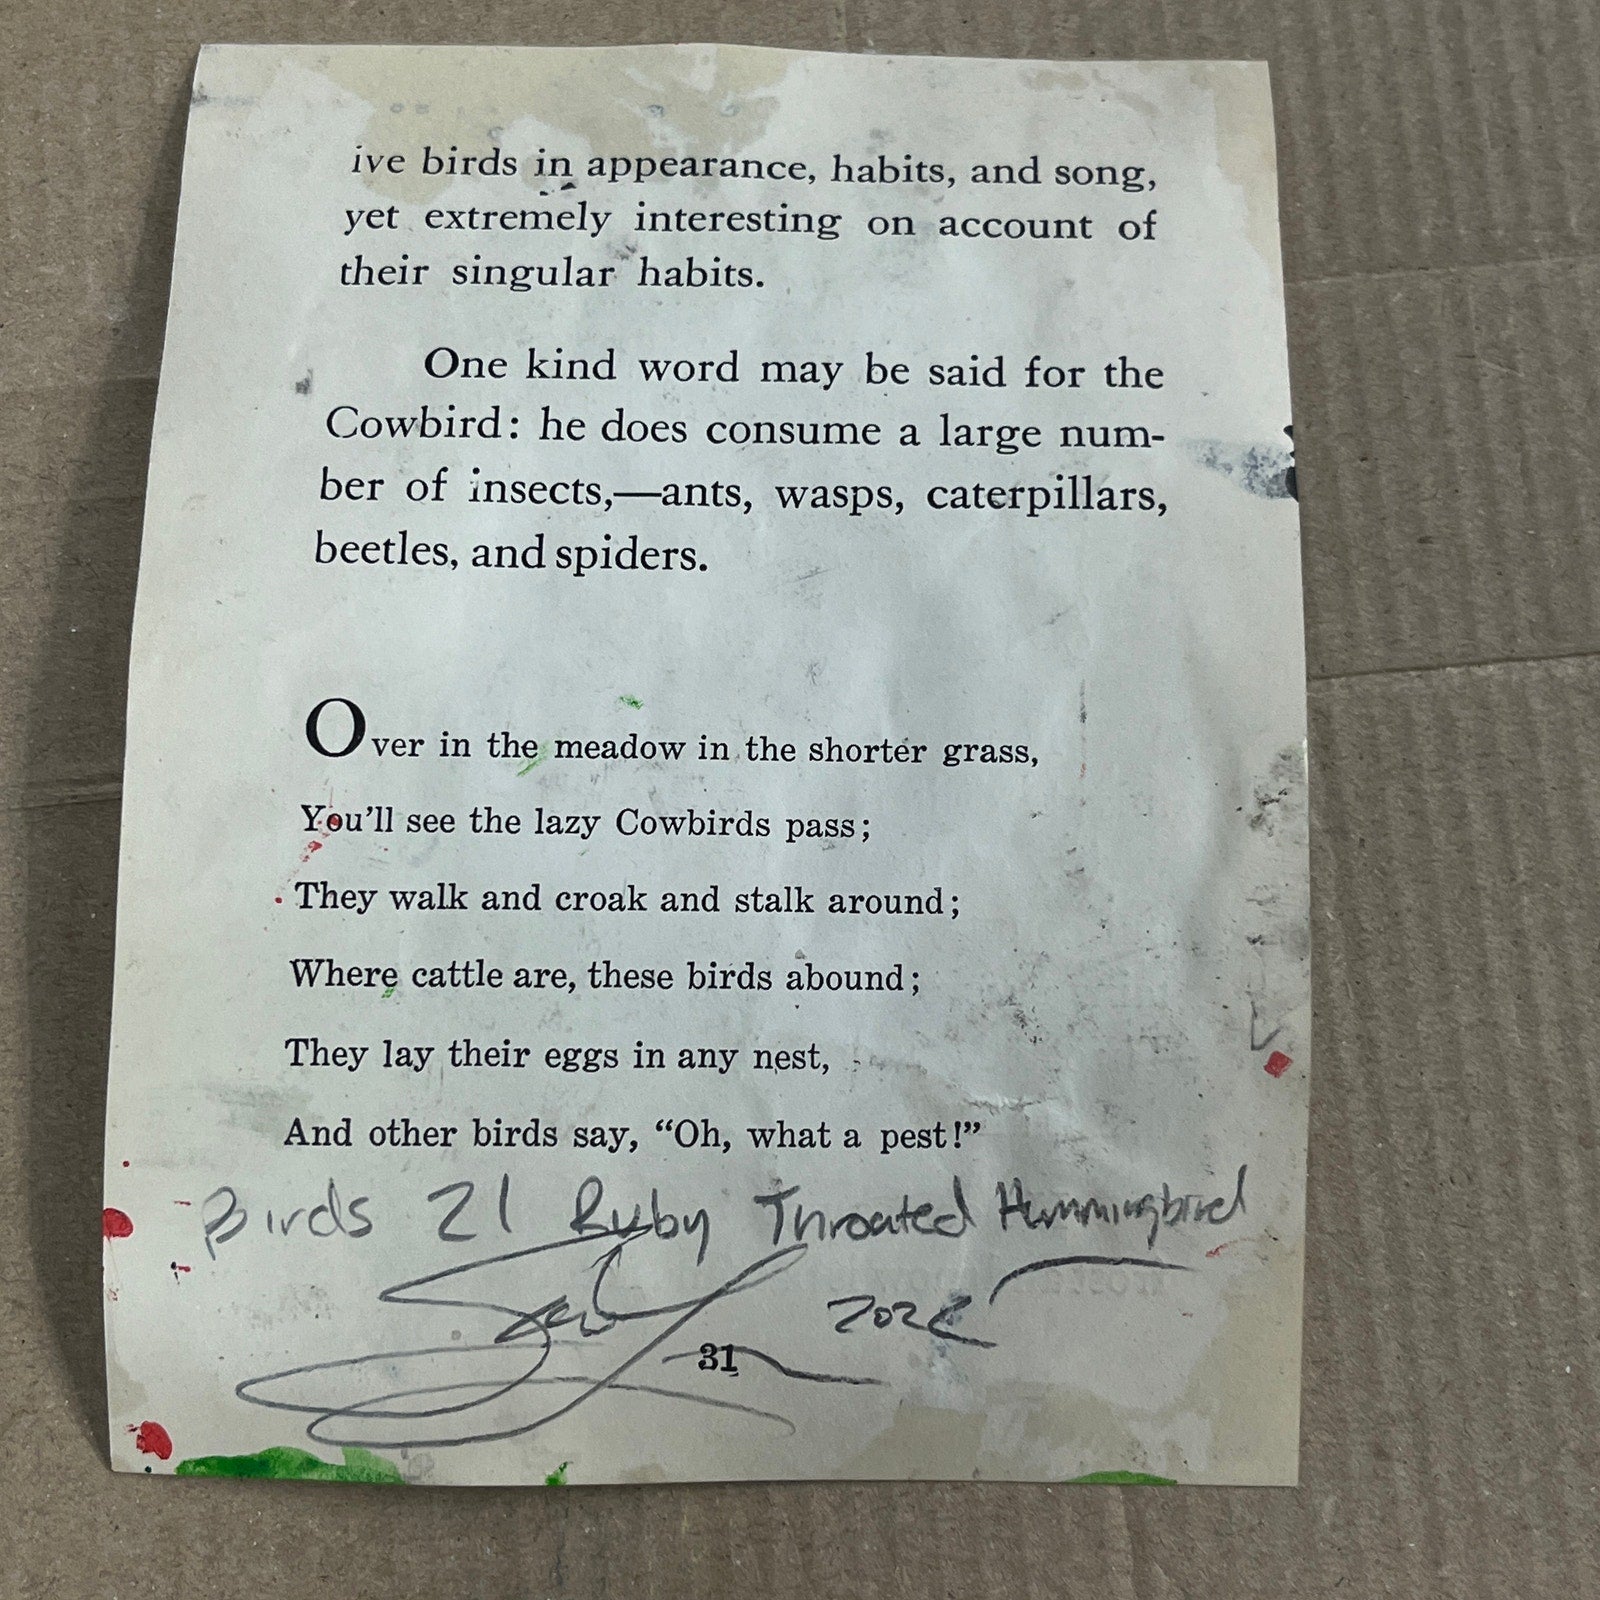 ive birds in appearance, habits, and song,
yet extremely interesting on account of
their singular habits.
One kind word may be said for the
Cowbird: he does consume a large num-
ber of insects,—ants, wasps, caterpillars,
beetles, and spiders.
Over in the meadow in the shorter grass,
You'll see the lazy Cowbirds pass;
They walk and croak and stalk around;
Where cattle are, these birds abound;
They lay their eggs in any nest,
And other birds say, “Oh, what a pest!”
Birds 21 Ruby Throated Hummingbird
31